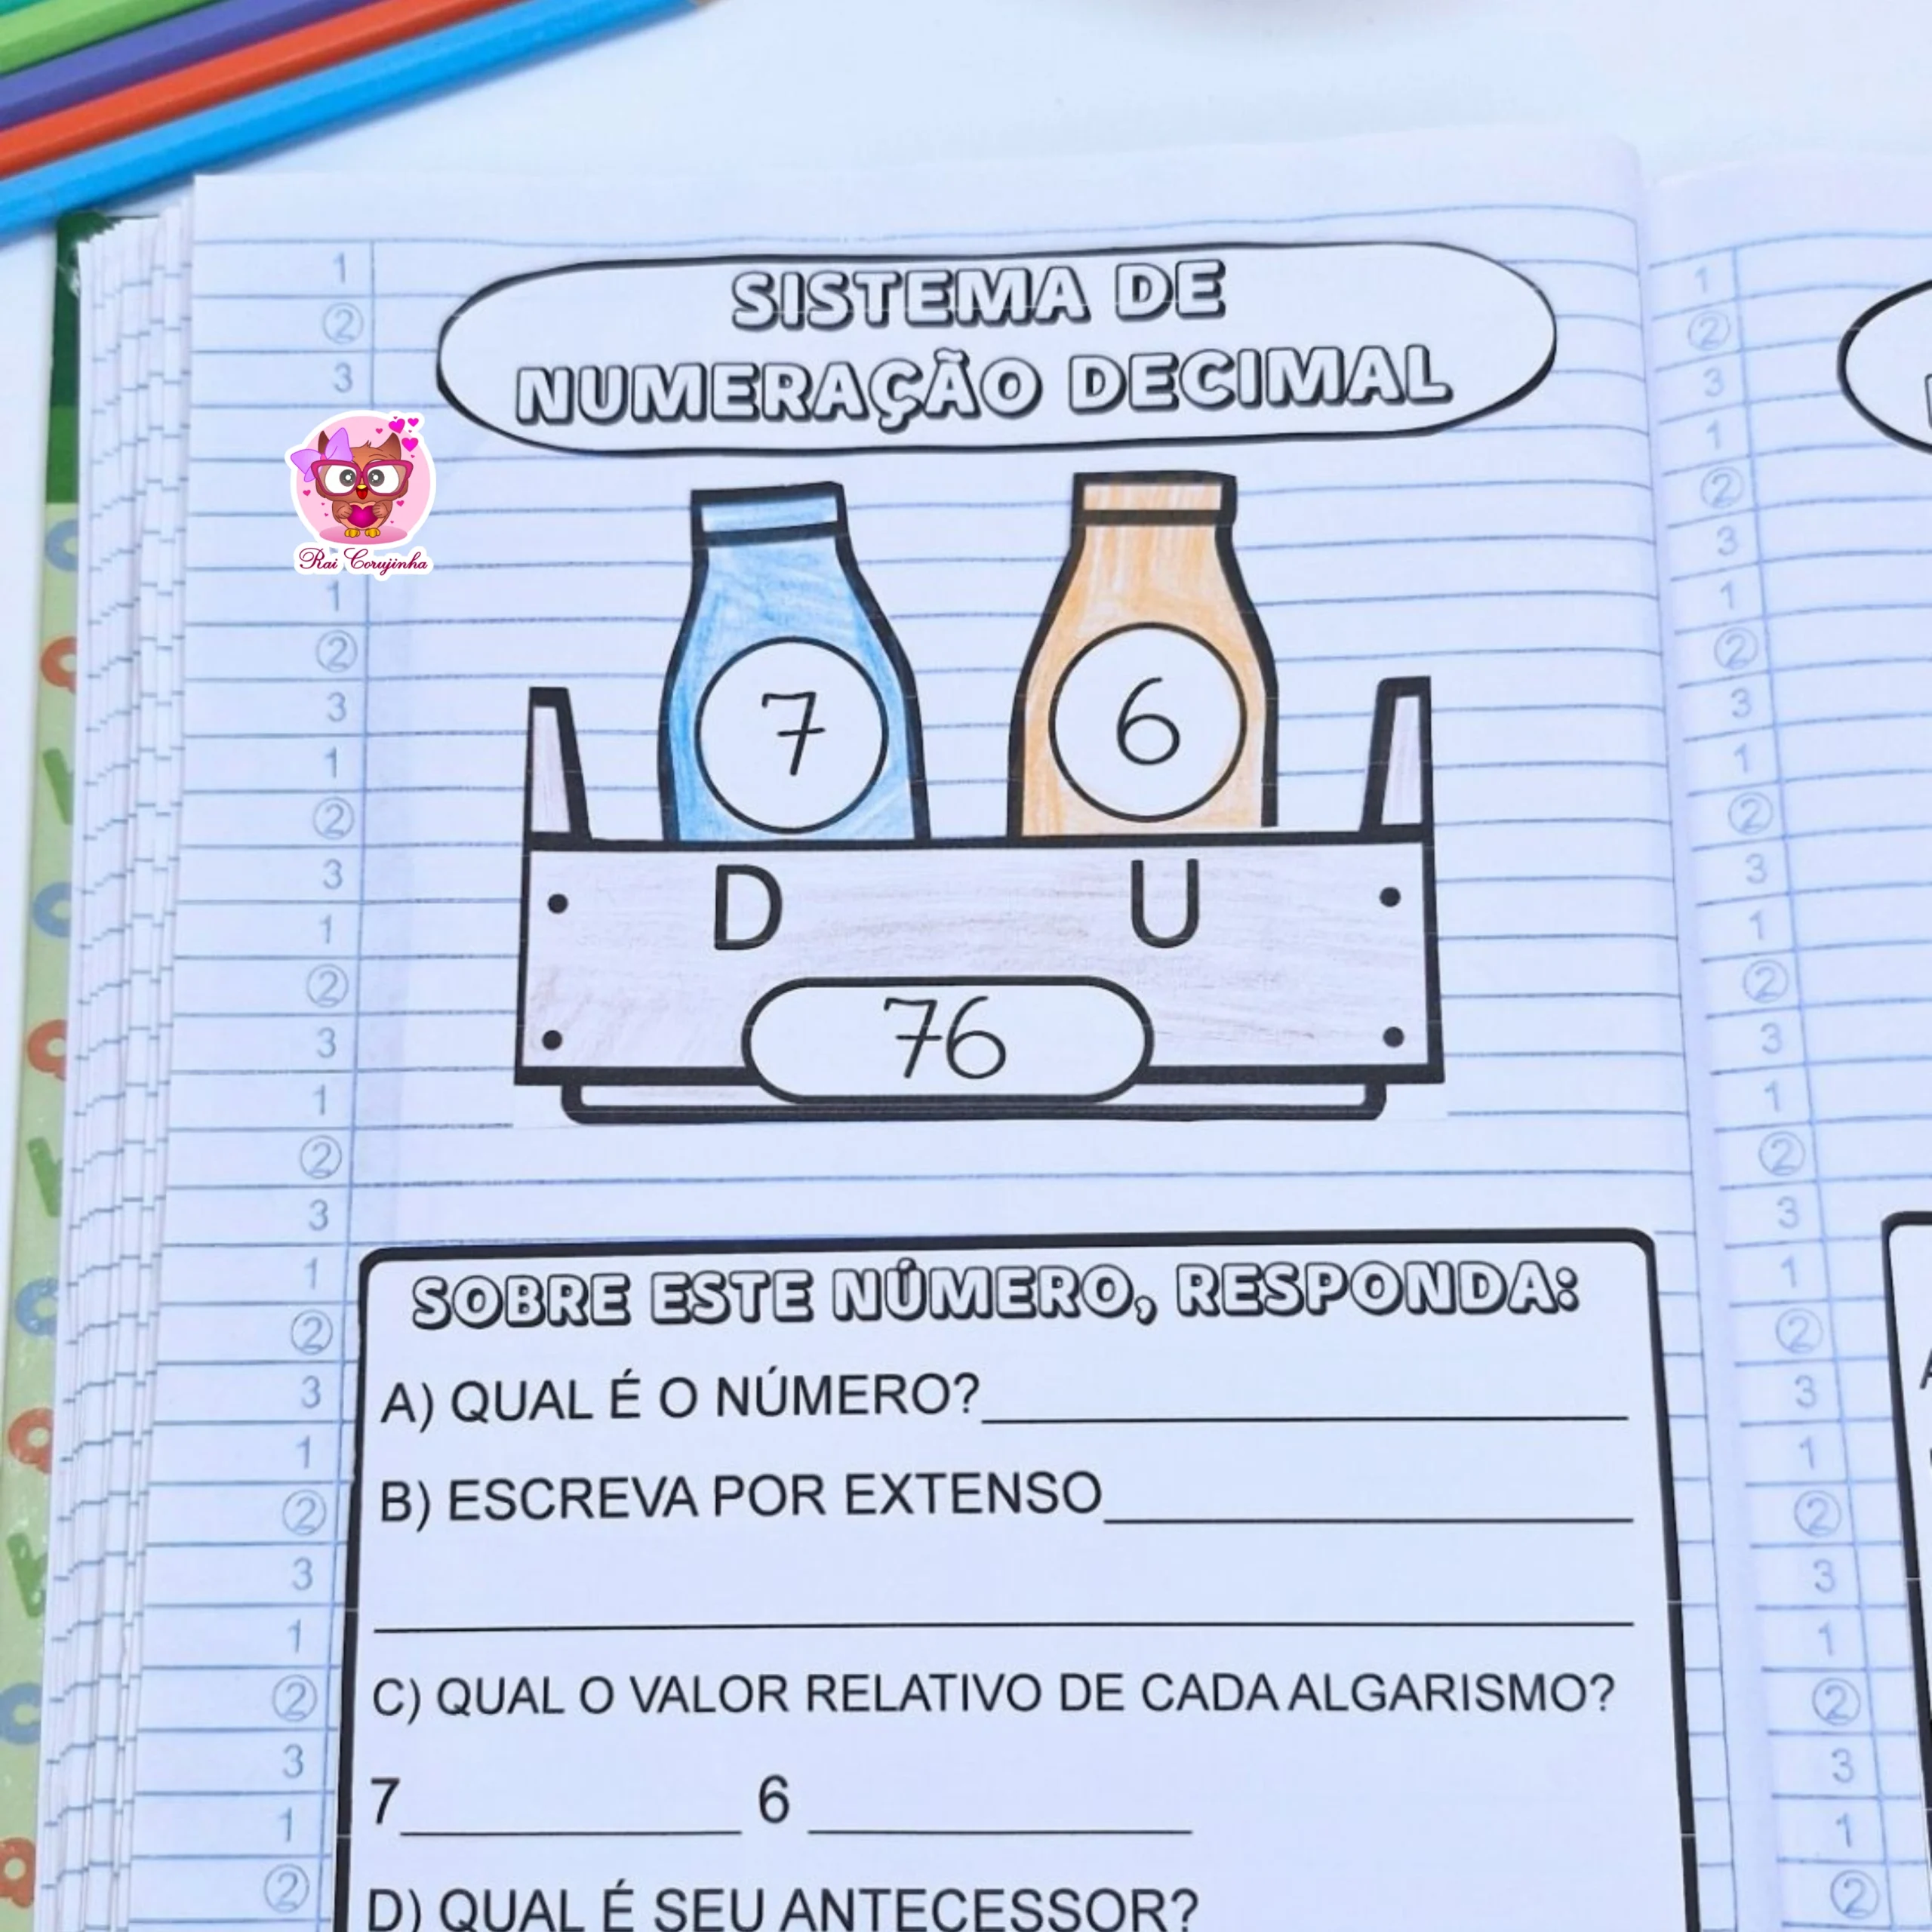 SISTEMA DE
NUMERAÇÃO DECIMAL
Rai Corujinha
7 6
D U
76
SOBRE ESTE NÚMERO, RESPONDA:
A) QUAL É O NÚMERO?
B) ESCREVA POR EXTENSO
C) QUAL O VALOR RELATIVO DE CADA ALGARISMO?
7 6
D) QUAL É SEU ANTECESSOR?